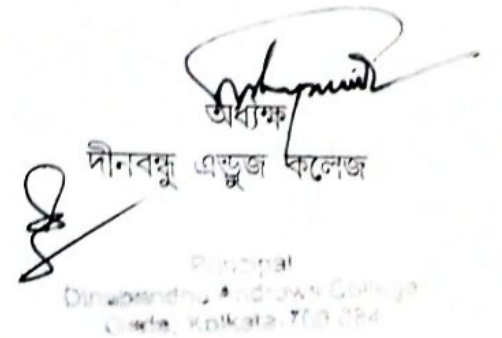 অধ্যক্ষ
দীনবন্ধু এন্ড্রুজ কলেজ
Principal
Dinabandhu Andrews College
Garia, Kolkata-700 084